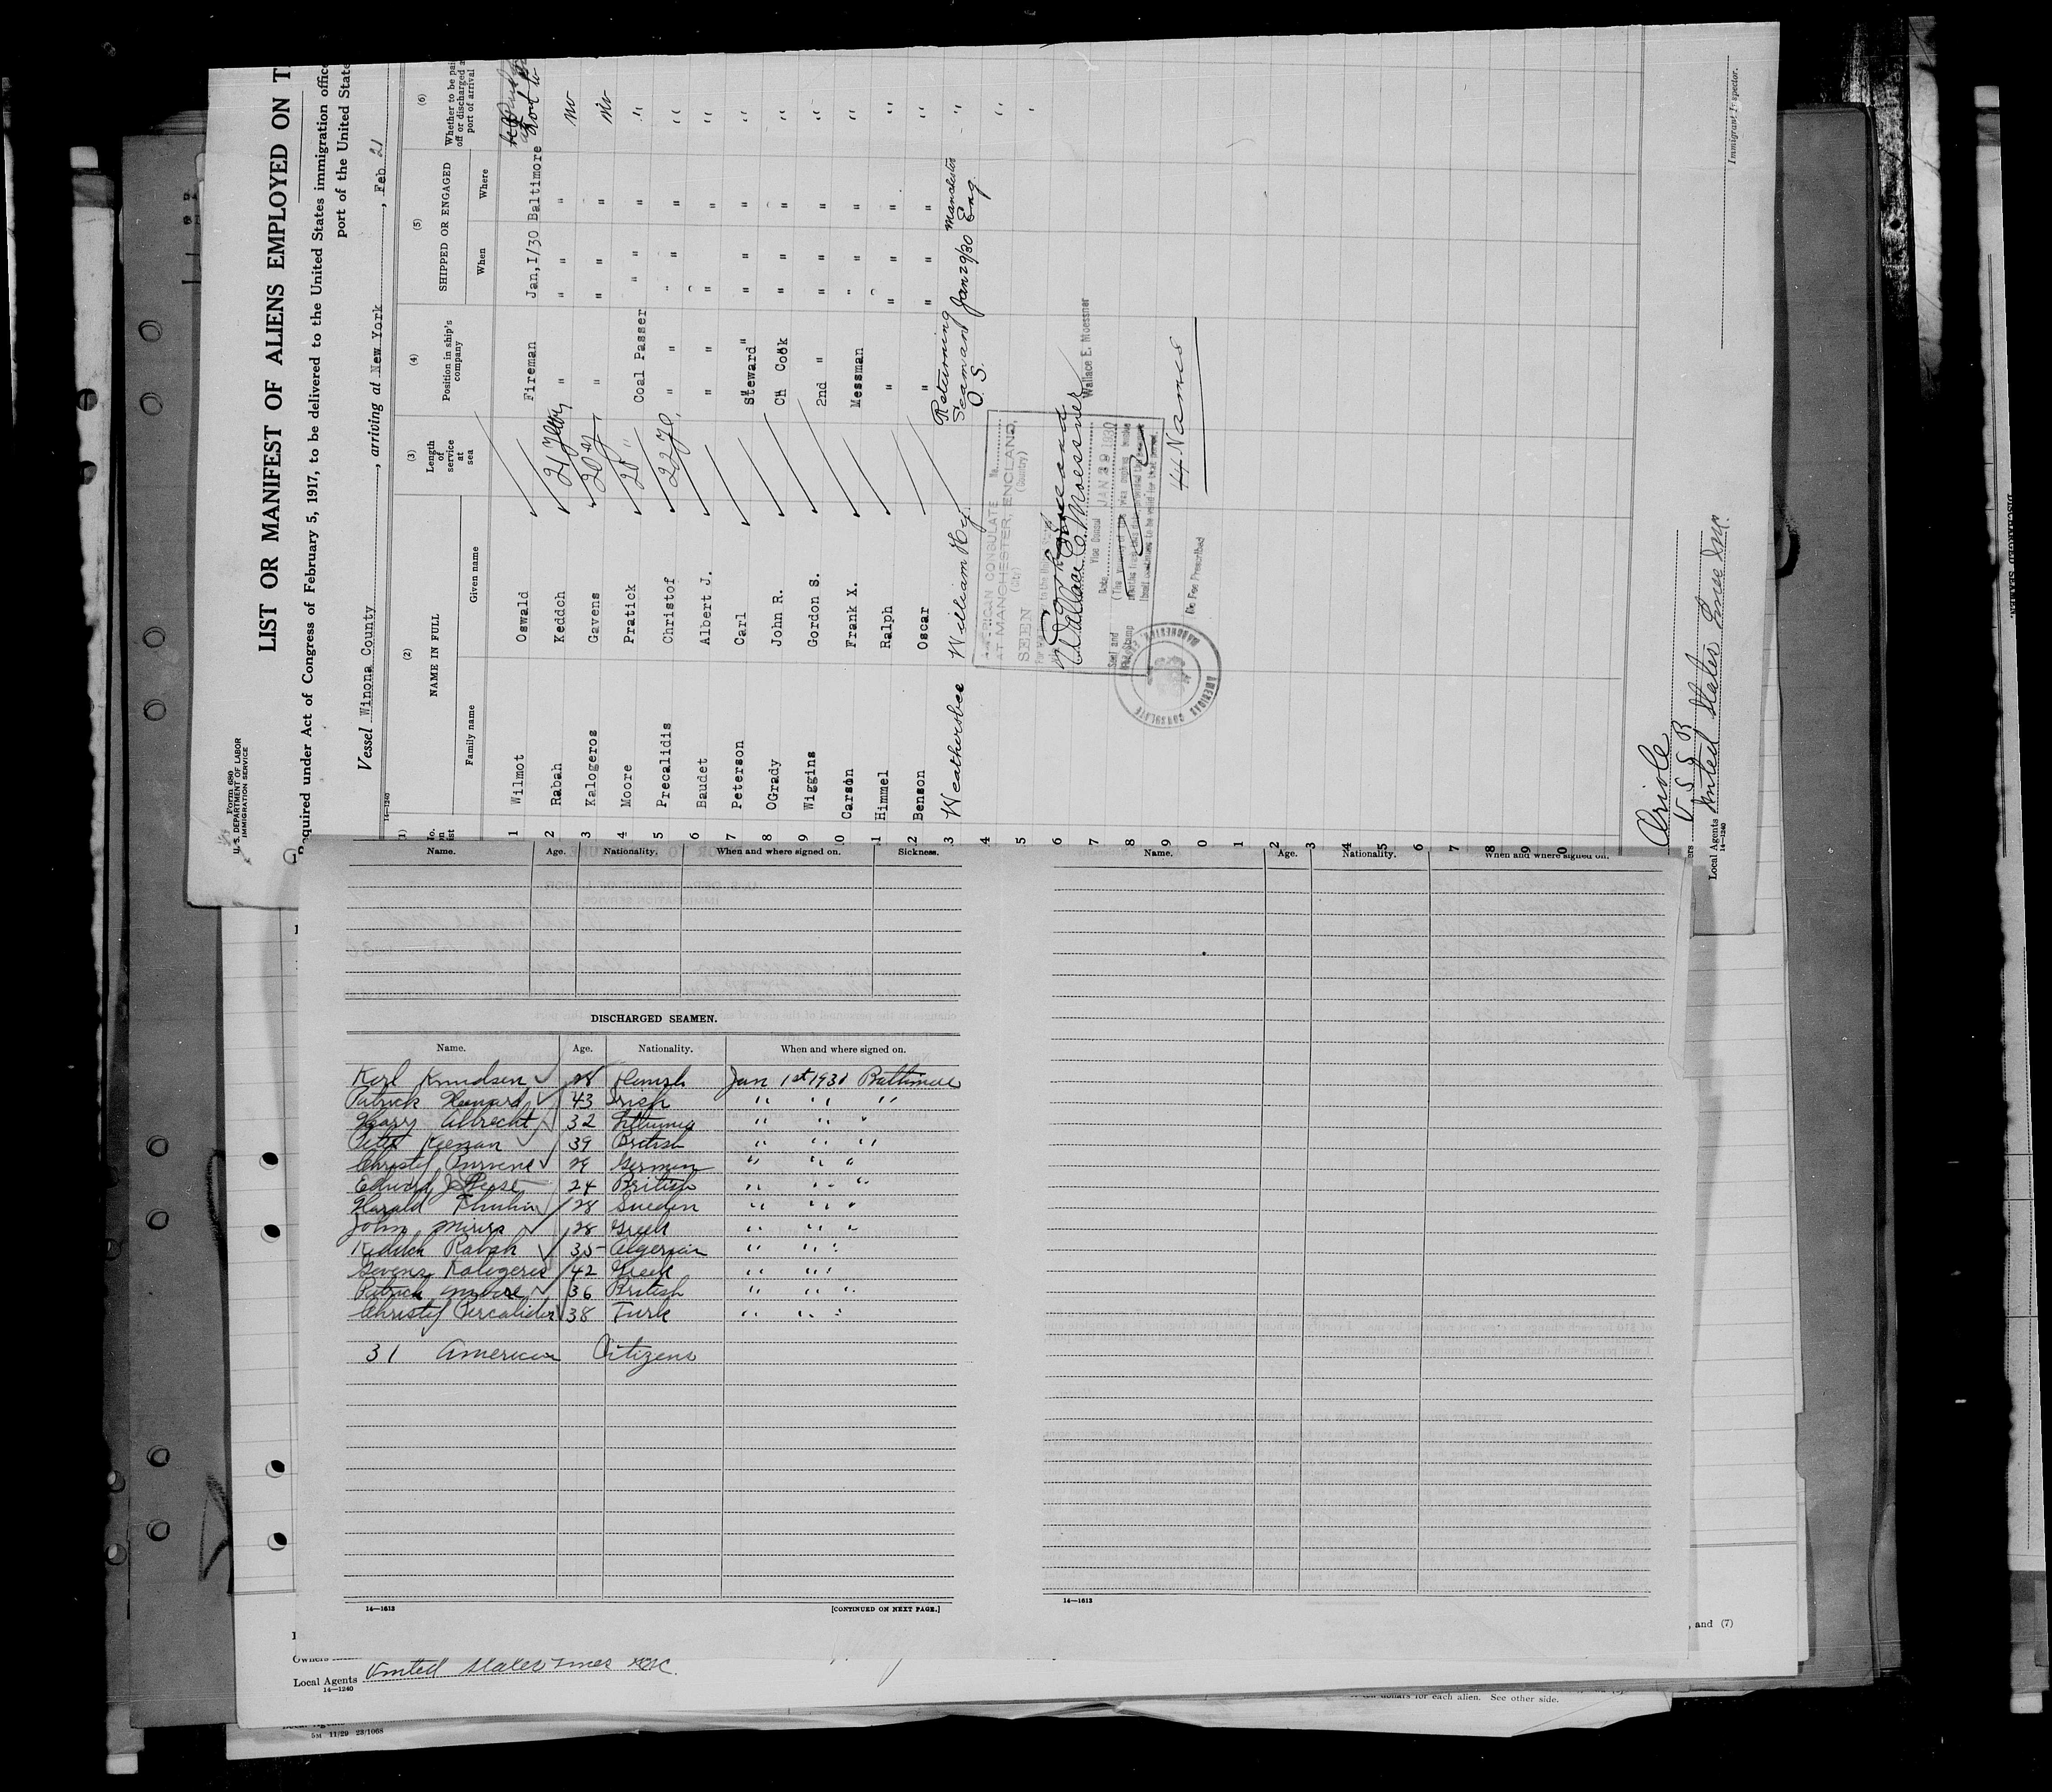 Form 680
U. S. DEPARTMENT OF LABOR
IMMIGRATION SERVICE
LIST OR MANIFEST OF ALIENS EMPLOYED ON T
Required under Act of Congress of February 5, 1917, to be delivered to the United States immigration office
port of the United State
Vessel Winona County, arriving at New York, Feb 21
14-1240
(1) (2) (3) (4) (5) (6)
NAME IN FULL Length of service at sea Position in ship's company SHIPPED OR ENGAGED Whether to be pai off or discharged a port of arrival
Family name Given name When Where
1 Wilmot Oswald Fireman Jan,1/30 Baltimore
2 Rabah Keddch 21 " " " " no
3 Kalogeros Gavens 20 " " " " no
4 Moore Pratick 20 " Coal Passer " " " "
5 Precalidis Christof 22 " " " " "
6 Baudet Albert J. " " " "
7 Peterson Carl Steward " " " "
8 OGrady John R. Ch Cook " " " "
9 Wiggins Gordon S. 2nd " " " " "
0 Carson Frank X. Messman " " " "
1 Himmel Ralph " " " " "
2 Benson Oscar " " " " "
3 Weatherbee William Hy. Returning Seaman O. S. Jan 29/30 Manchester Eng. "
4 "
5 "
6
7
8
9
0
1
2
3
4
5
6
7
8
9
0
AMERICAN CONSULATE No.
AT MANCHESTER, ENGLAND.
(City) (Country)
SEEN
Wallace E. Moessner
Wallace E. Moessner
Vice Consul
Date JAN 29 1930
Seal and
Fee Stamp
No Fee Prescribed
AMERICAN CONSULATE MANCHESTER
44 Names
Oriole
U. S. S. B
Local Agents United States Lines Inc.
14-1240
Immigrant Inspector.
Name. Age. Nationality. When and where signed on. Sickness.
DISCHARGED SEAMEN.
Name. Age. Nationality. When and where signed on.
Karl Knudsen 28 Jan 1st 1930 Baltimore
Patrick 43 Irish " " "
Harry Albrecht 32 " " "
Peter Keenan 39 British " " "
Christof German " " "
Edward J 24 British " " "
Harald 28 Sweden " " "
John 28 Greek " " "
Keddch Rabah 35 Algerian " " "
Gevens Kalogeros 42 Greek " " "
Patrick Moore 36 British " " "
Christof Percalidis 38 Turk " " "
31 American Citizens
14—1613 [CONTINUED ON NEXT PAGE.]
Name. Age. Nationality. When and where signed on.
14—1613
, and (7)
Owners
Local Agents United States Lines Inc.
14—1240
dollars for each alien. See other side.
5M 11/29 23/1068
DISCHARGED SEAMEN.